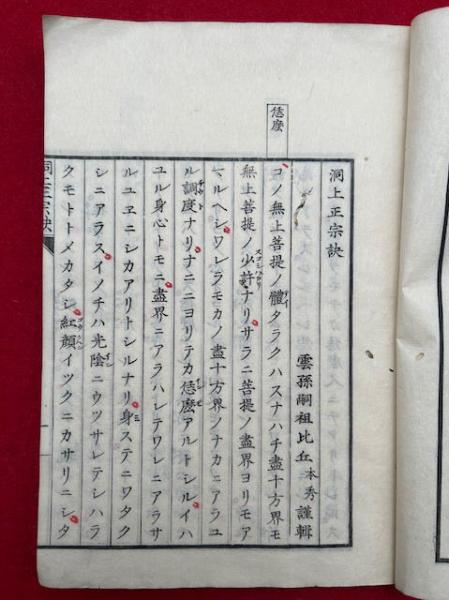 洞上正宗訣
雲孫嗣祖比丘本秀謹輯
恁麽
コノ無上菩提ノ體タラクハスナハチ盡十方界モ
無上菩提ノ少許ナリサラニ菩提ノ盡界ヨリモア
マルヘシワレラモカノ盡十方界ノナカニアラユ
ル調度ナリナニニヨリテカ恁麽アルトシルイハ
ユル身心トモニ盡界ニアラハレテワレニアラサ
ルユヱニシカアリトシルナリ身ステニワタク
シニアラスイノチハ光陰ニウツサレテシハラ
クモトトメカタシ紅顏イツクニカサリニシタ